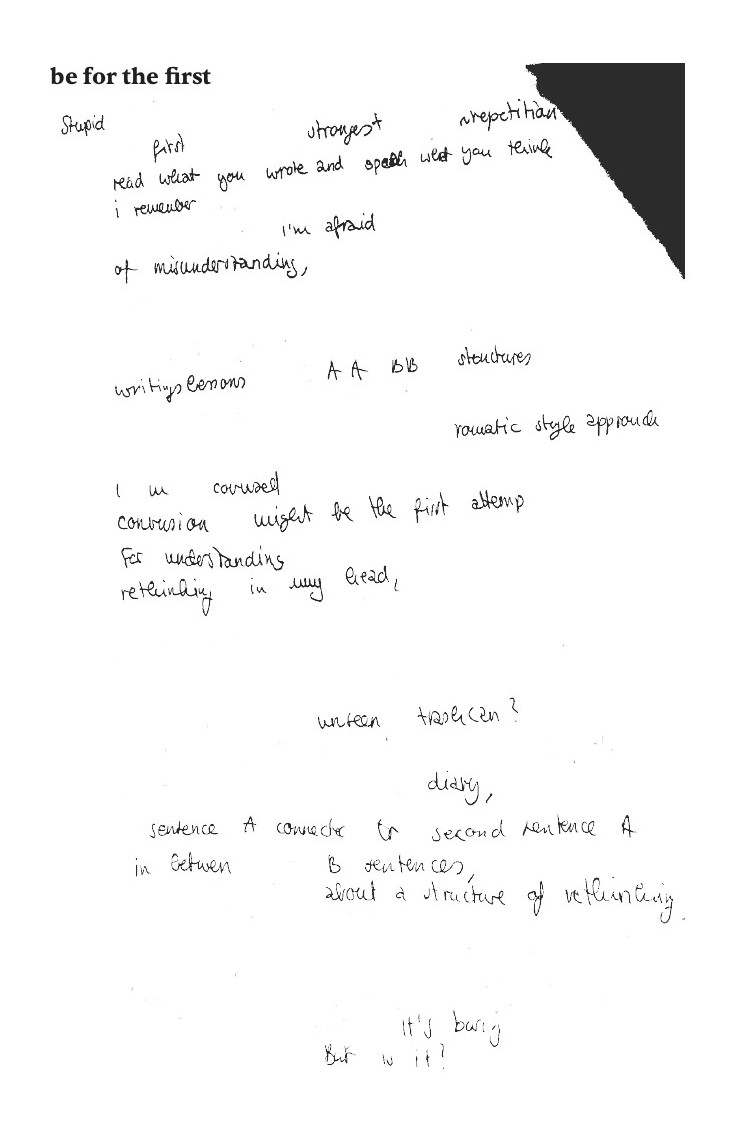 be for the first
Stupid strongest repetition
first
read what you wrote and speak what you think
i remember
I'm afraid
of misunderstanding,
writings lessons A A BB structures
romatic style approach
I m
confusion might be the first attemp
For understanding
rethinking in my head,
unseen trashcan?
diary,
sentence A connects to second sentence A
in betwen B sentences,
about a structure of rethinking.
it's
But is it?